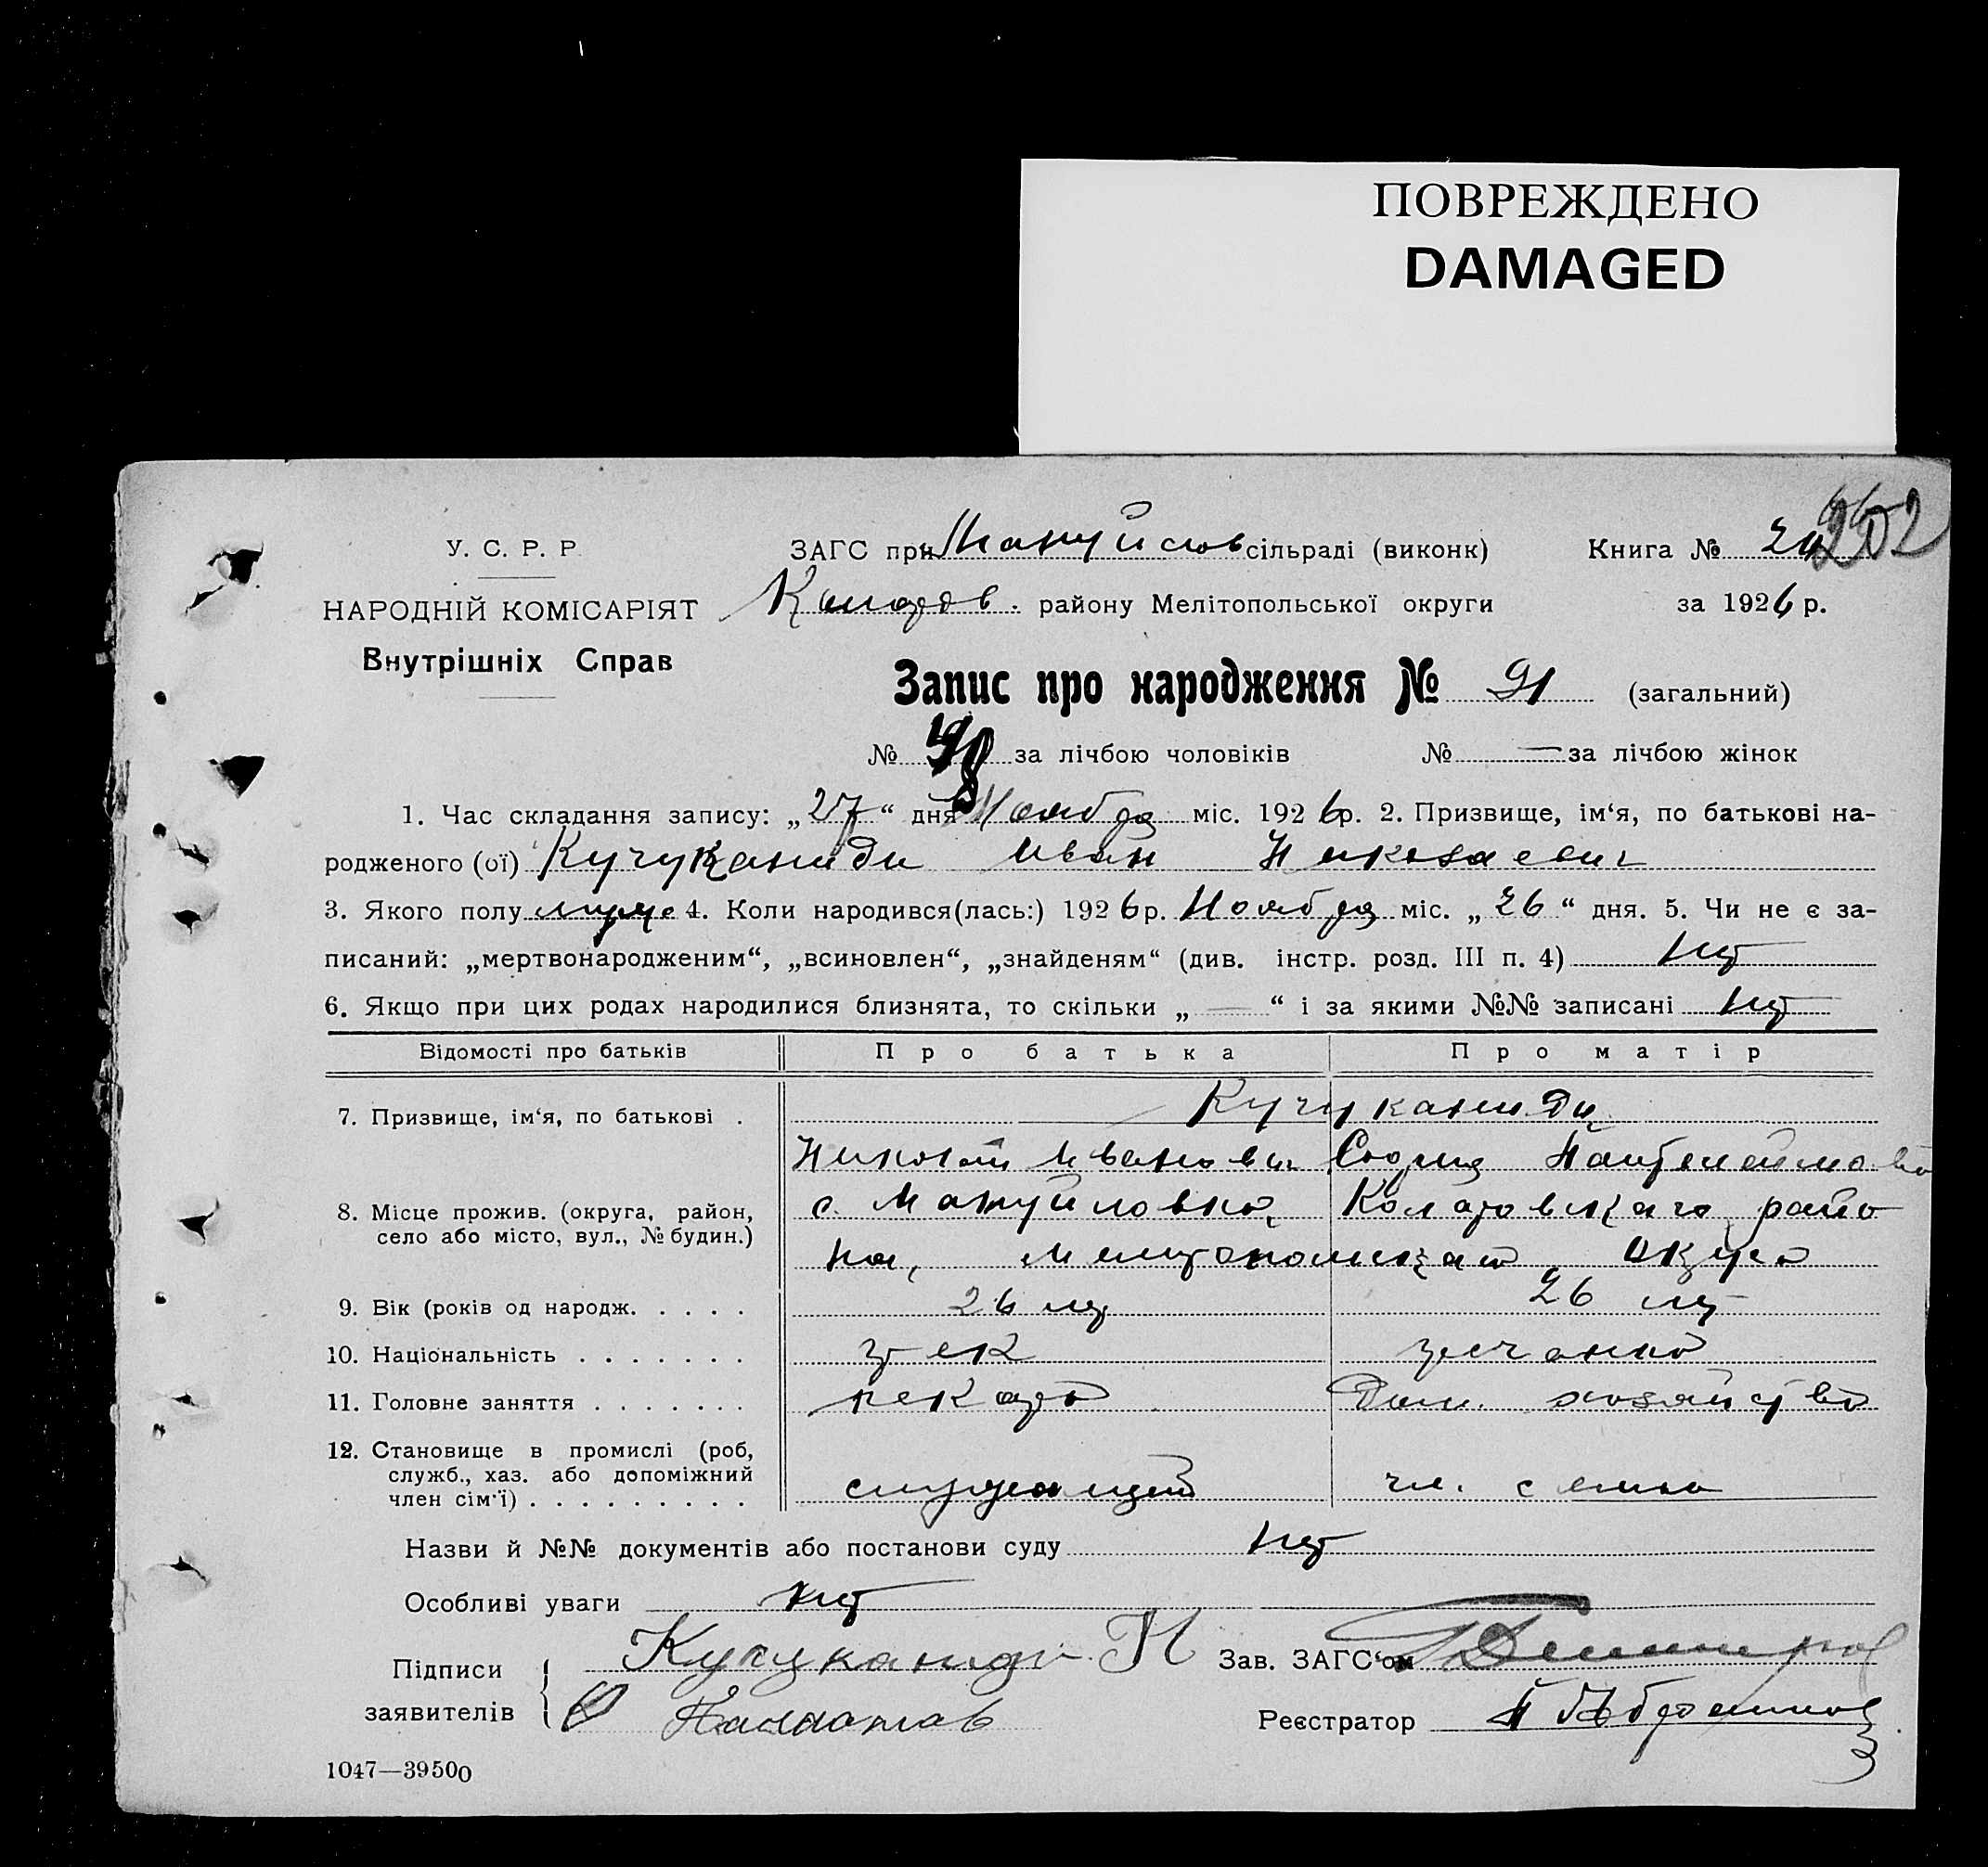 ПОВРЕЖДЕНО
DAMAGED
252
У. С. Р. Р. ЗАГС при Мануйлов сільраді (виконк) Книга №
НАРОДНІЙ КОМІСАРІЯТ района Мелітопольської округи за 1926 р.
Внутрішніх Справ
Запис про народження № 91 (загальний)
№ за лічбою чоловіків № — за лічбою жінок
1. Час складання запису: „27“ дня Ноября міс. 1926р. 2. Призвище, ім‘я, по батькові на-
родженого (ої) Кучукániди Иван Николаевич
3. Якого полу муж. 4. Коли народився(лась:) 1926р. Ноября міс. „26“ дня. 5. Чи не є за-
писаний: „мертвонародженим“, „всиновлен“, „знайденям“ (див. інстр. розд. III п. 4) нет
6. Якщо при цих родах народилися близнята, то скільки „—“ і за якими №№ записані нет
Відомості про батьків Про батька Про матір
7. Призвище, ім‘я, по батькові . Кучуканиди
Николай Иванович София Пантелеймоно
8. Місце прожив. (округа, район, село або місто, вул., № будин.) с. Мануйловка, района
на, Мелитопольской округа
9. Вік (років од народж. . . . . 26 лет 26 лет
10. Національність . . . . . . . грек гречанка
11. Головне заняття . . . . . . . пекарь Дом. хозяйство
12. Становище в промислі (роб, служб., хаз. або допоміжний член сім‘ї) . . . . . . . . . служащий чл. семьи
Назви й №№ документів або постанови суду нет
Особливі уваги нет
Підписи заявителів Кучуканиди Н Зав. ЗАГС‘ом
Реєстратор
1047—39500